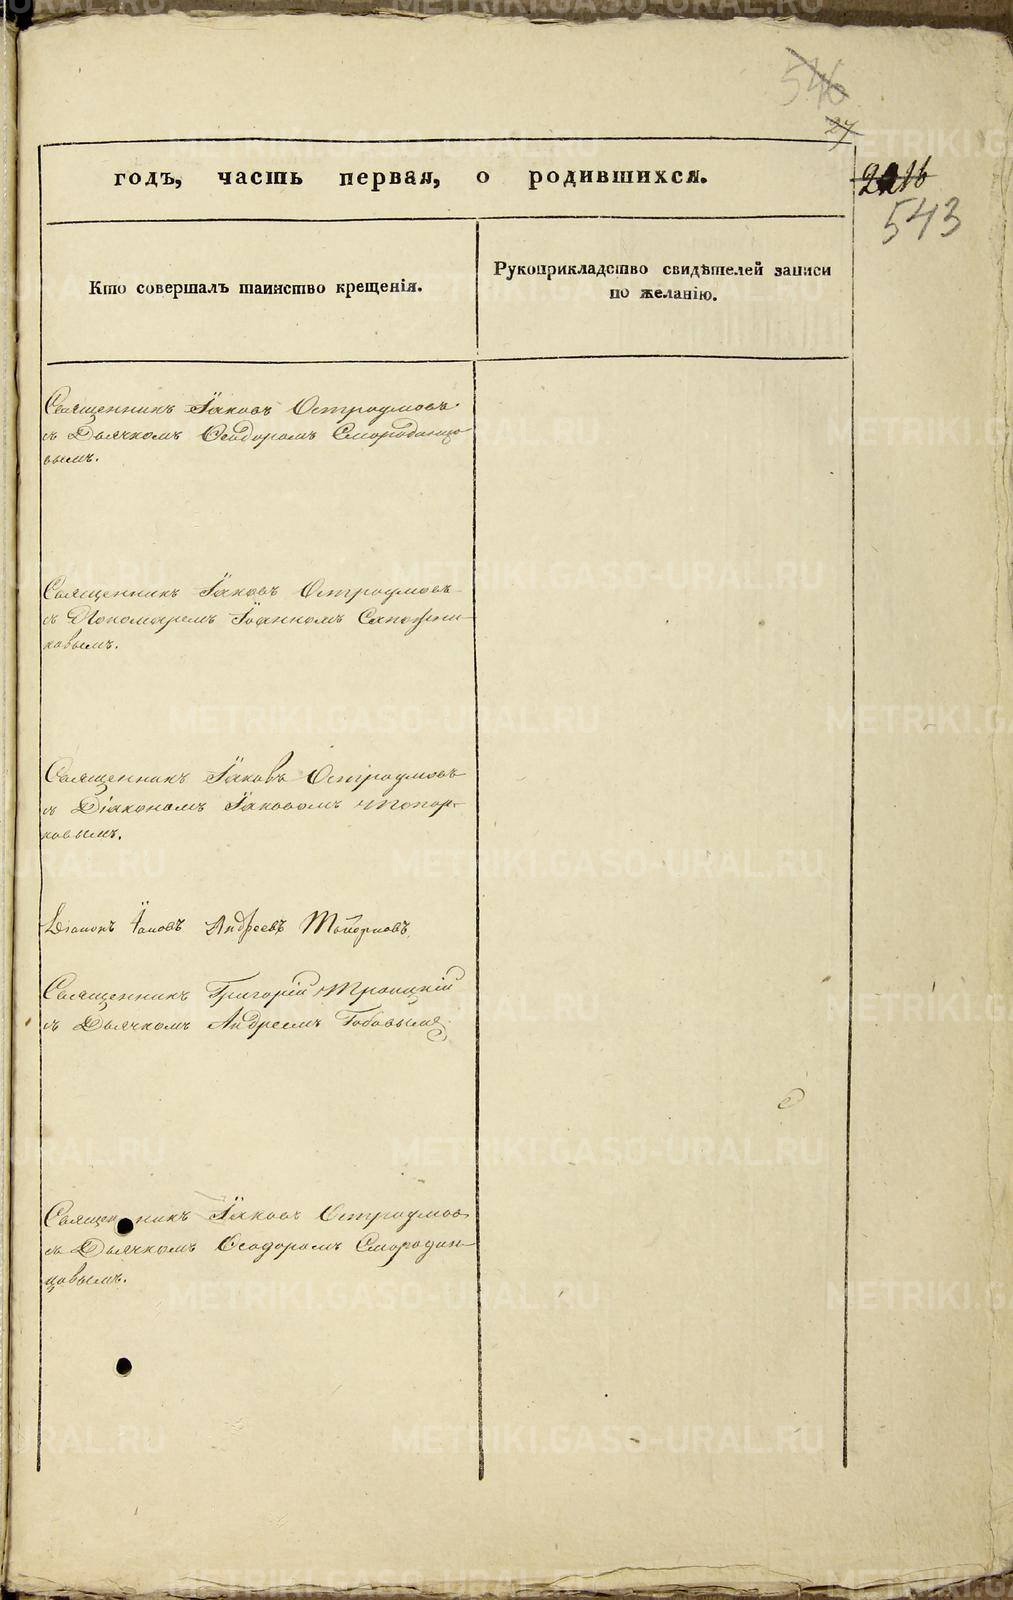 546
27
годъ, часть первая, о родившихся.
2216
543
Кто совершалъ таинство крещенія.
Рукоприкладство свидѣтелей записи
по желанію.
Священникъ Іаковъ Остроумовъ
съ Дьячкомъ Ѳеодоромъ Смородинцо
вымъ.
Священникъ Іаковъ Остроумовъ
съ Пономаремъ Іоанномъ Сапожни-
ковымъ.
Священникъ Іаковъ Остроумовъ
съ Діакономъ Іаковомъ Топор-
ковымъ.
Діаконъ Іаковъ Андреевъ Топорковъ
Священникъ Григорій Троицкій
съ Дьячкомъ Андреемъ
Священникъ Іаковъ Остроумовъ
съ Дьячкомъ Ѳеодоромъ Смородин-
цовымъ.
METRIKI.GASO-URAL.RU